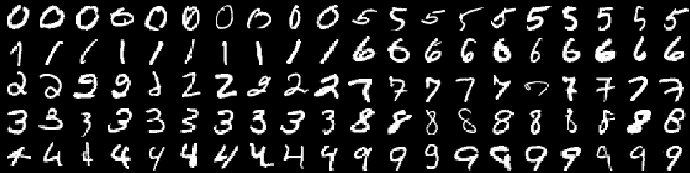 0 0 0 0 0 0 0 0 0 0 5 5 5 5 5 5 5 5 5 5
1 1 1 1 1 1 1 1 1 1 6 6 6 6 6 6 6 6 6 6
2 2 2 2 2 2 2 2 2 2 7 7 7 7 7 7 7 7 7 7
3 3 3 3 3 3 3 3 3 3 8 8 8 8 8 8 8 8 8 8
4 4 4 4 4 4 4 4 4 4 9 9 9 9 9 9 9 9 9 9